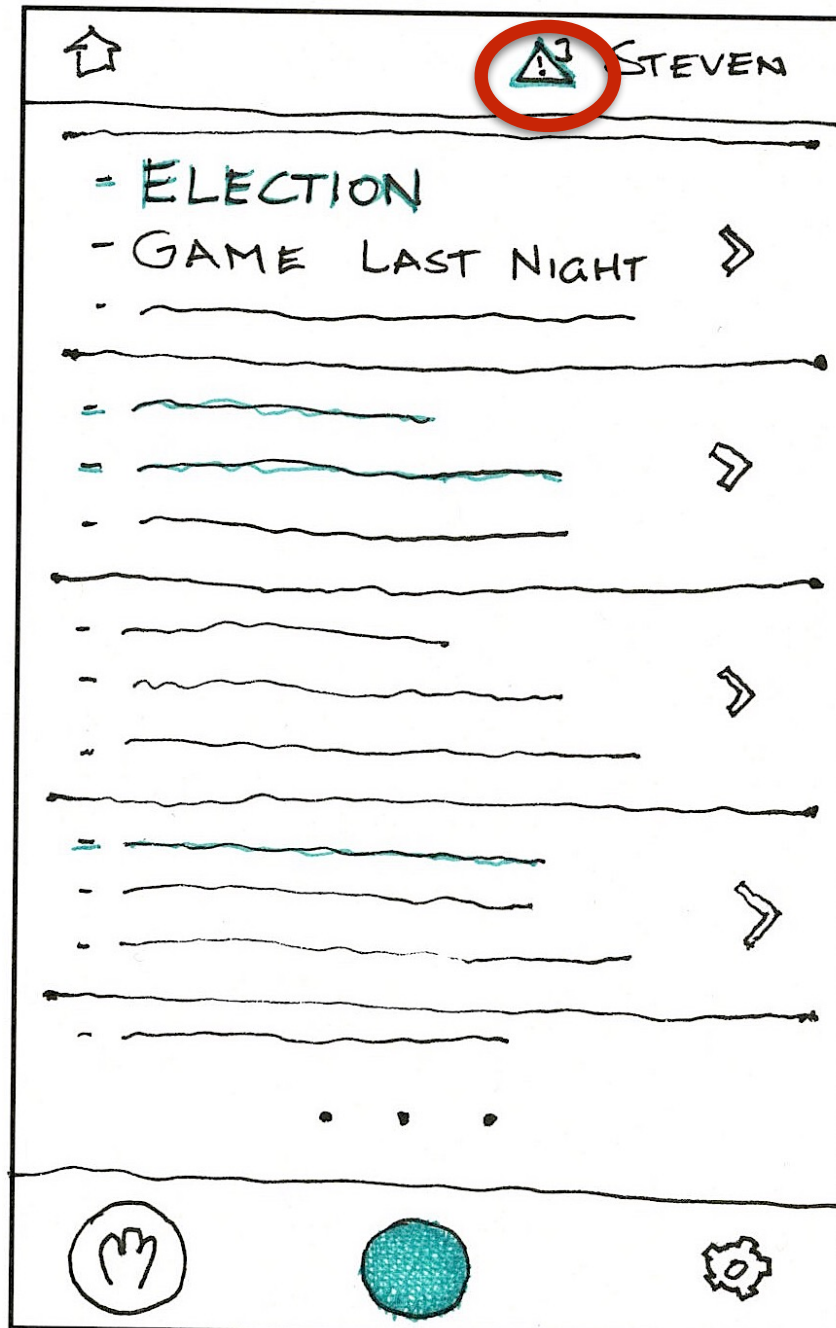 ! 3 STEVEN
= ELECTION
- GAME LAST NIGHT